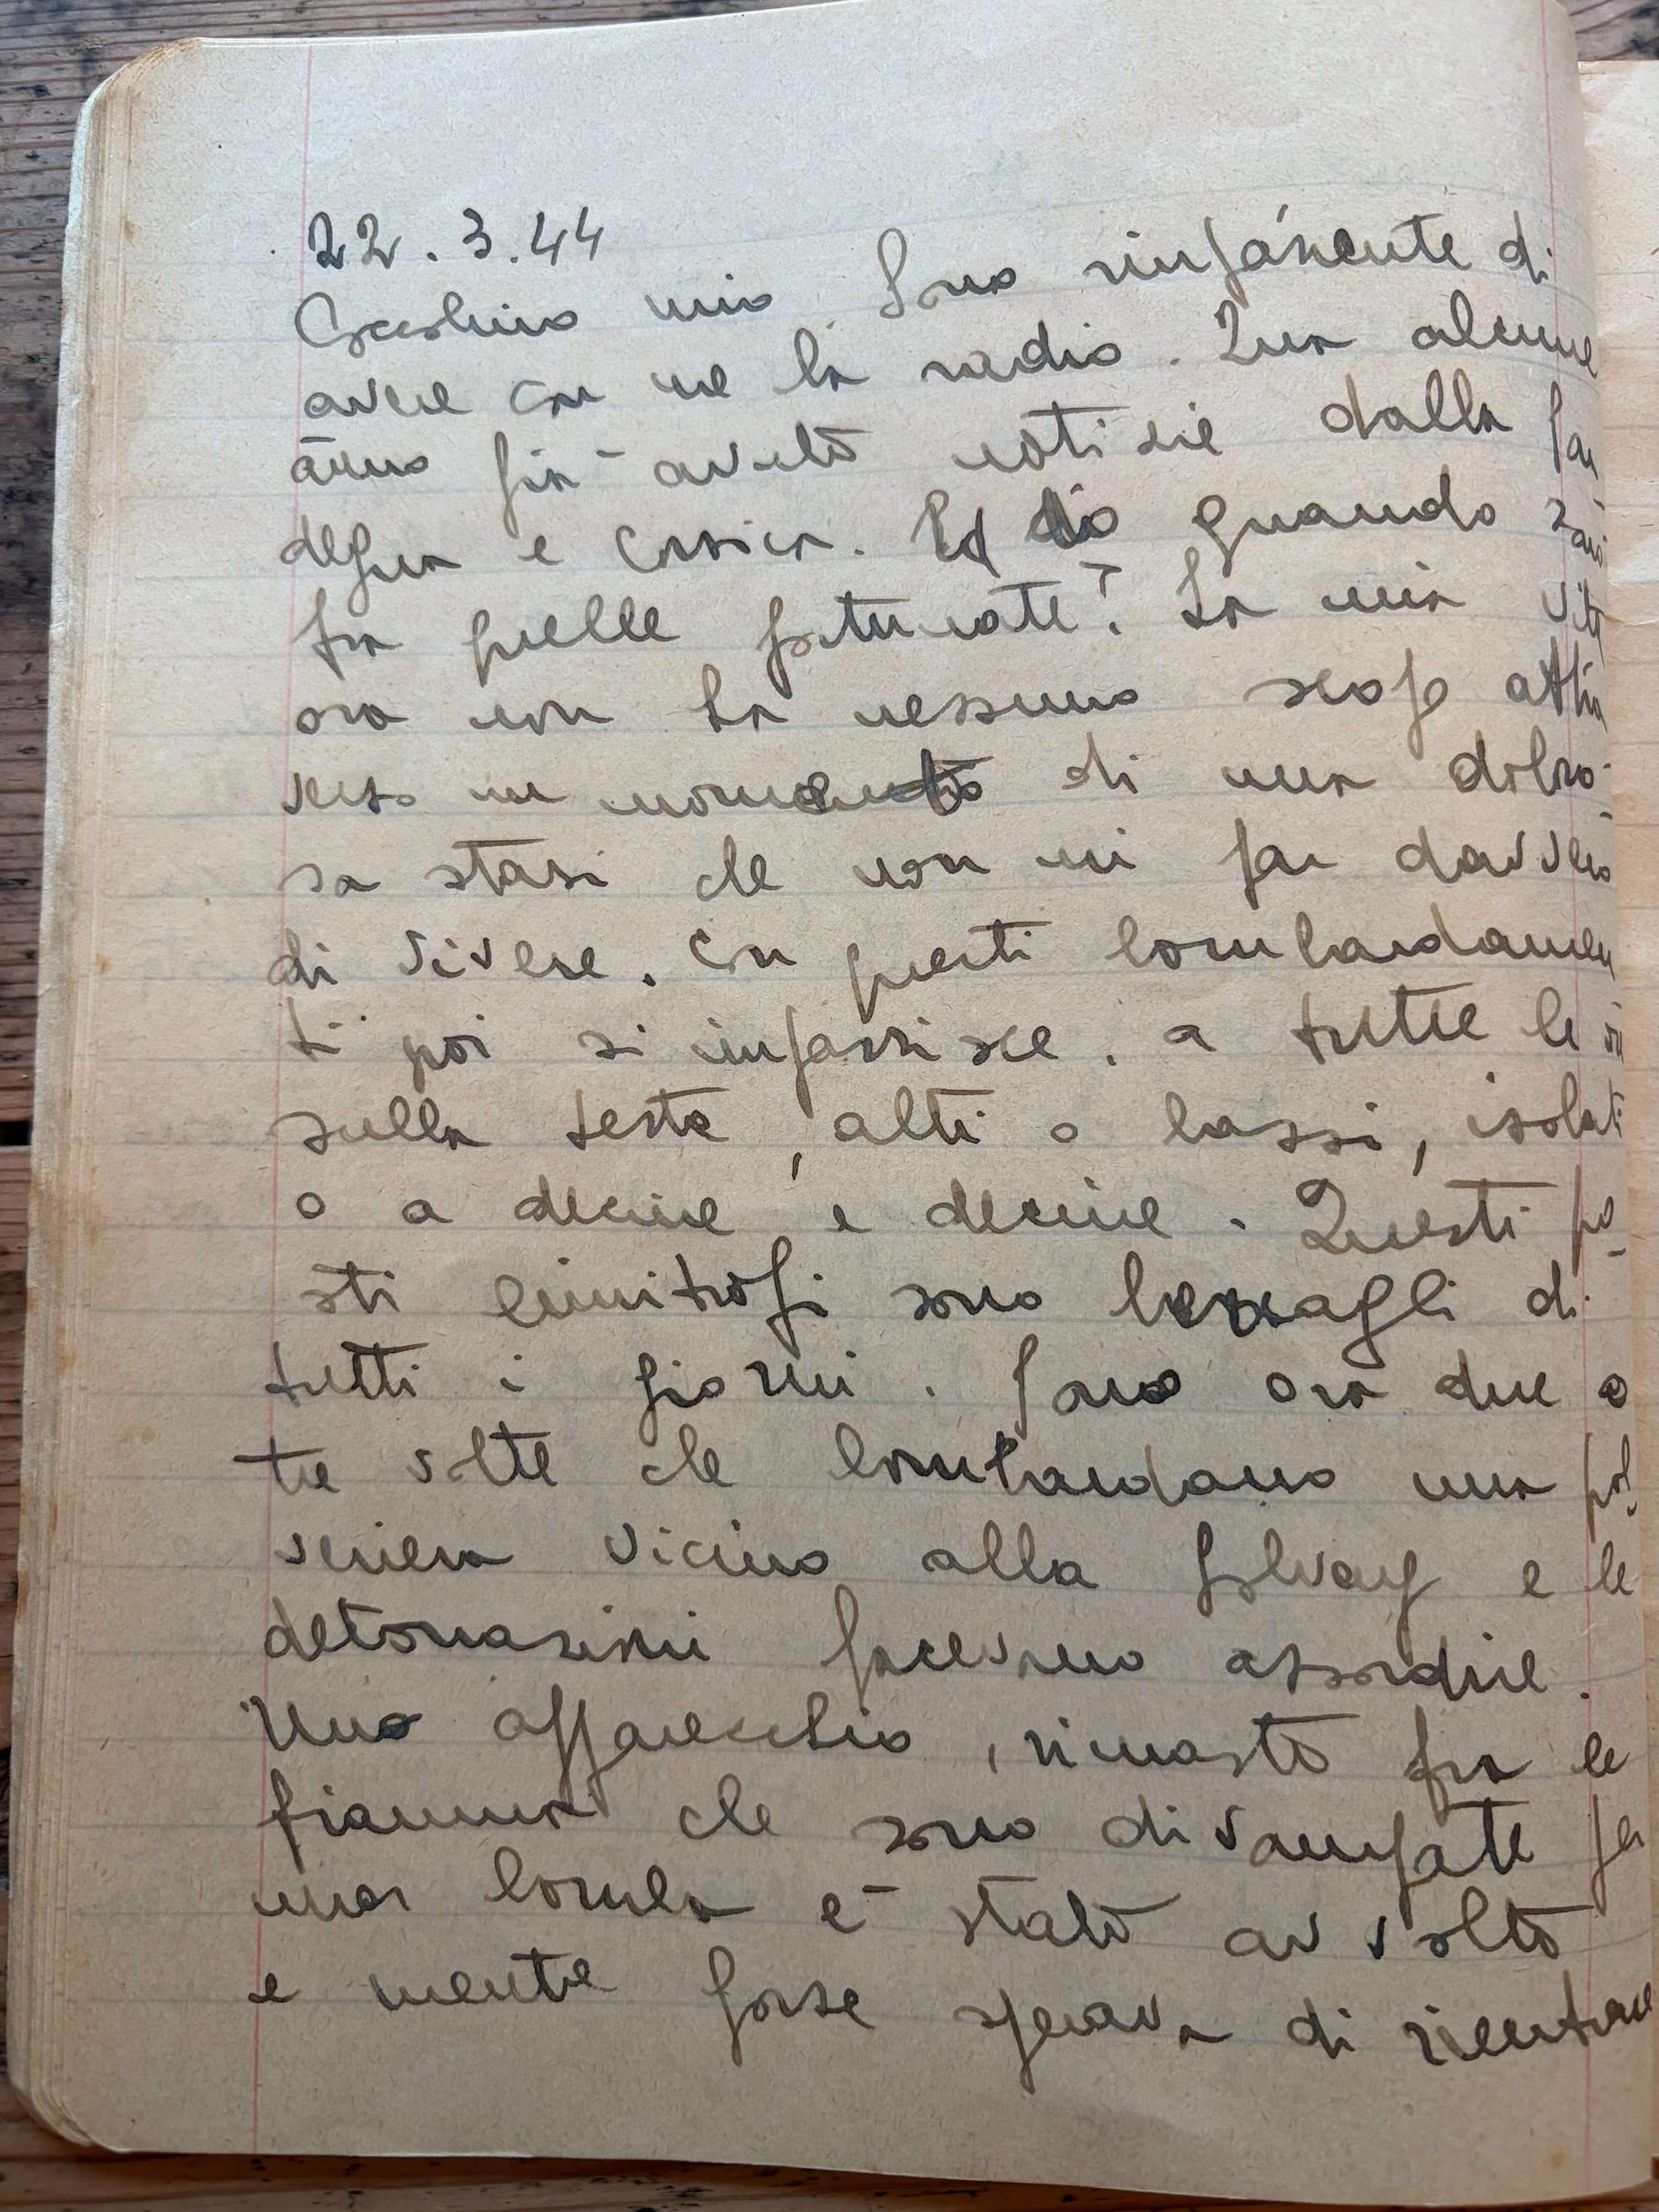 22.3.44
mio. Sono impaziente di
avere con me la radio. Qua alcune
ànno già avuto notizie dalla Sar
degna e Corsica. Ed io quando sarò
fra quelle fortunate? La mia vita
ora non ha nessuno scopo attra
verso un momento di una doloro-
sa stasi che non mi par davvero
di vivere. Con questi bombardamen
ti poi si impazzisce. a tutte le
sulla testa, alti o bassi, isolati
o a decine e decine. Questi po-
sti limitrofi sono bersagli di
tutti i giorni. Sono ora due o
tre volte che bombardano una pol
veriera vicino alla Solvay e le
detonazioni facevano assordire.
Uno apparecchio, rimasto fra le
fiamme che sono divampate per
una bomba è stato avvolto
e mentre forse sperava di rientrare